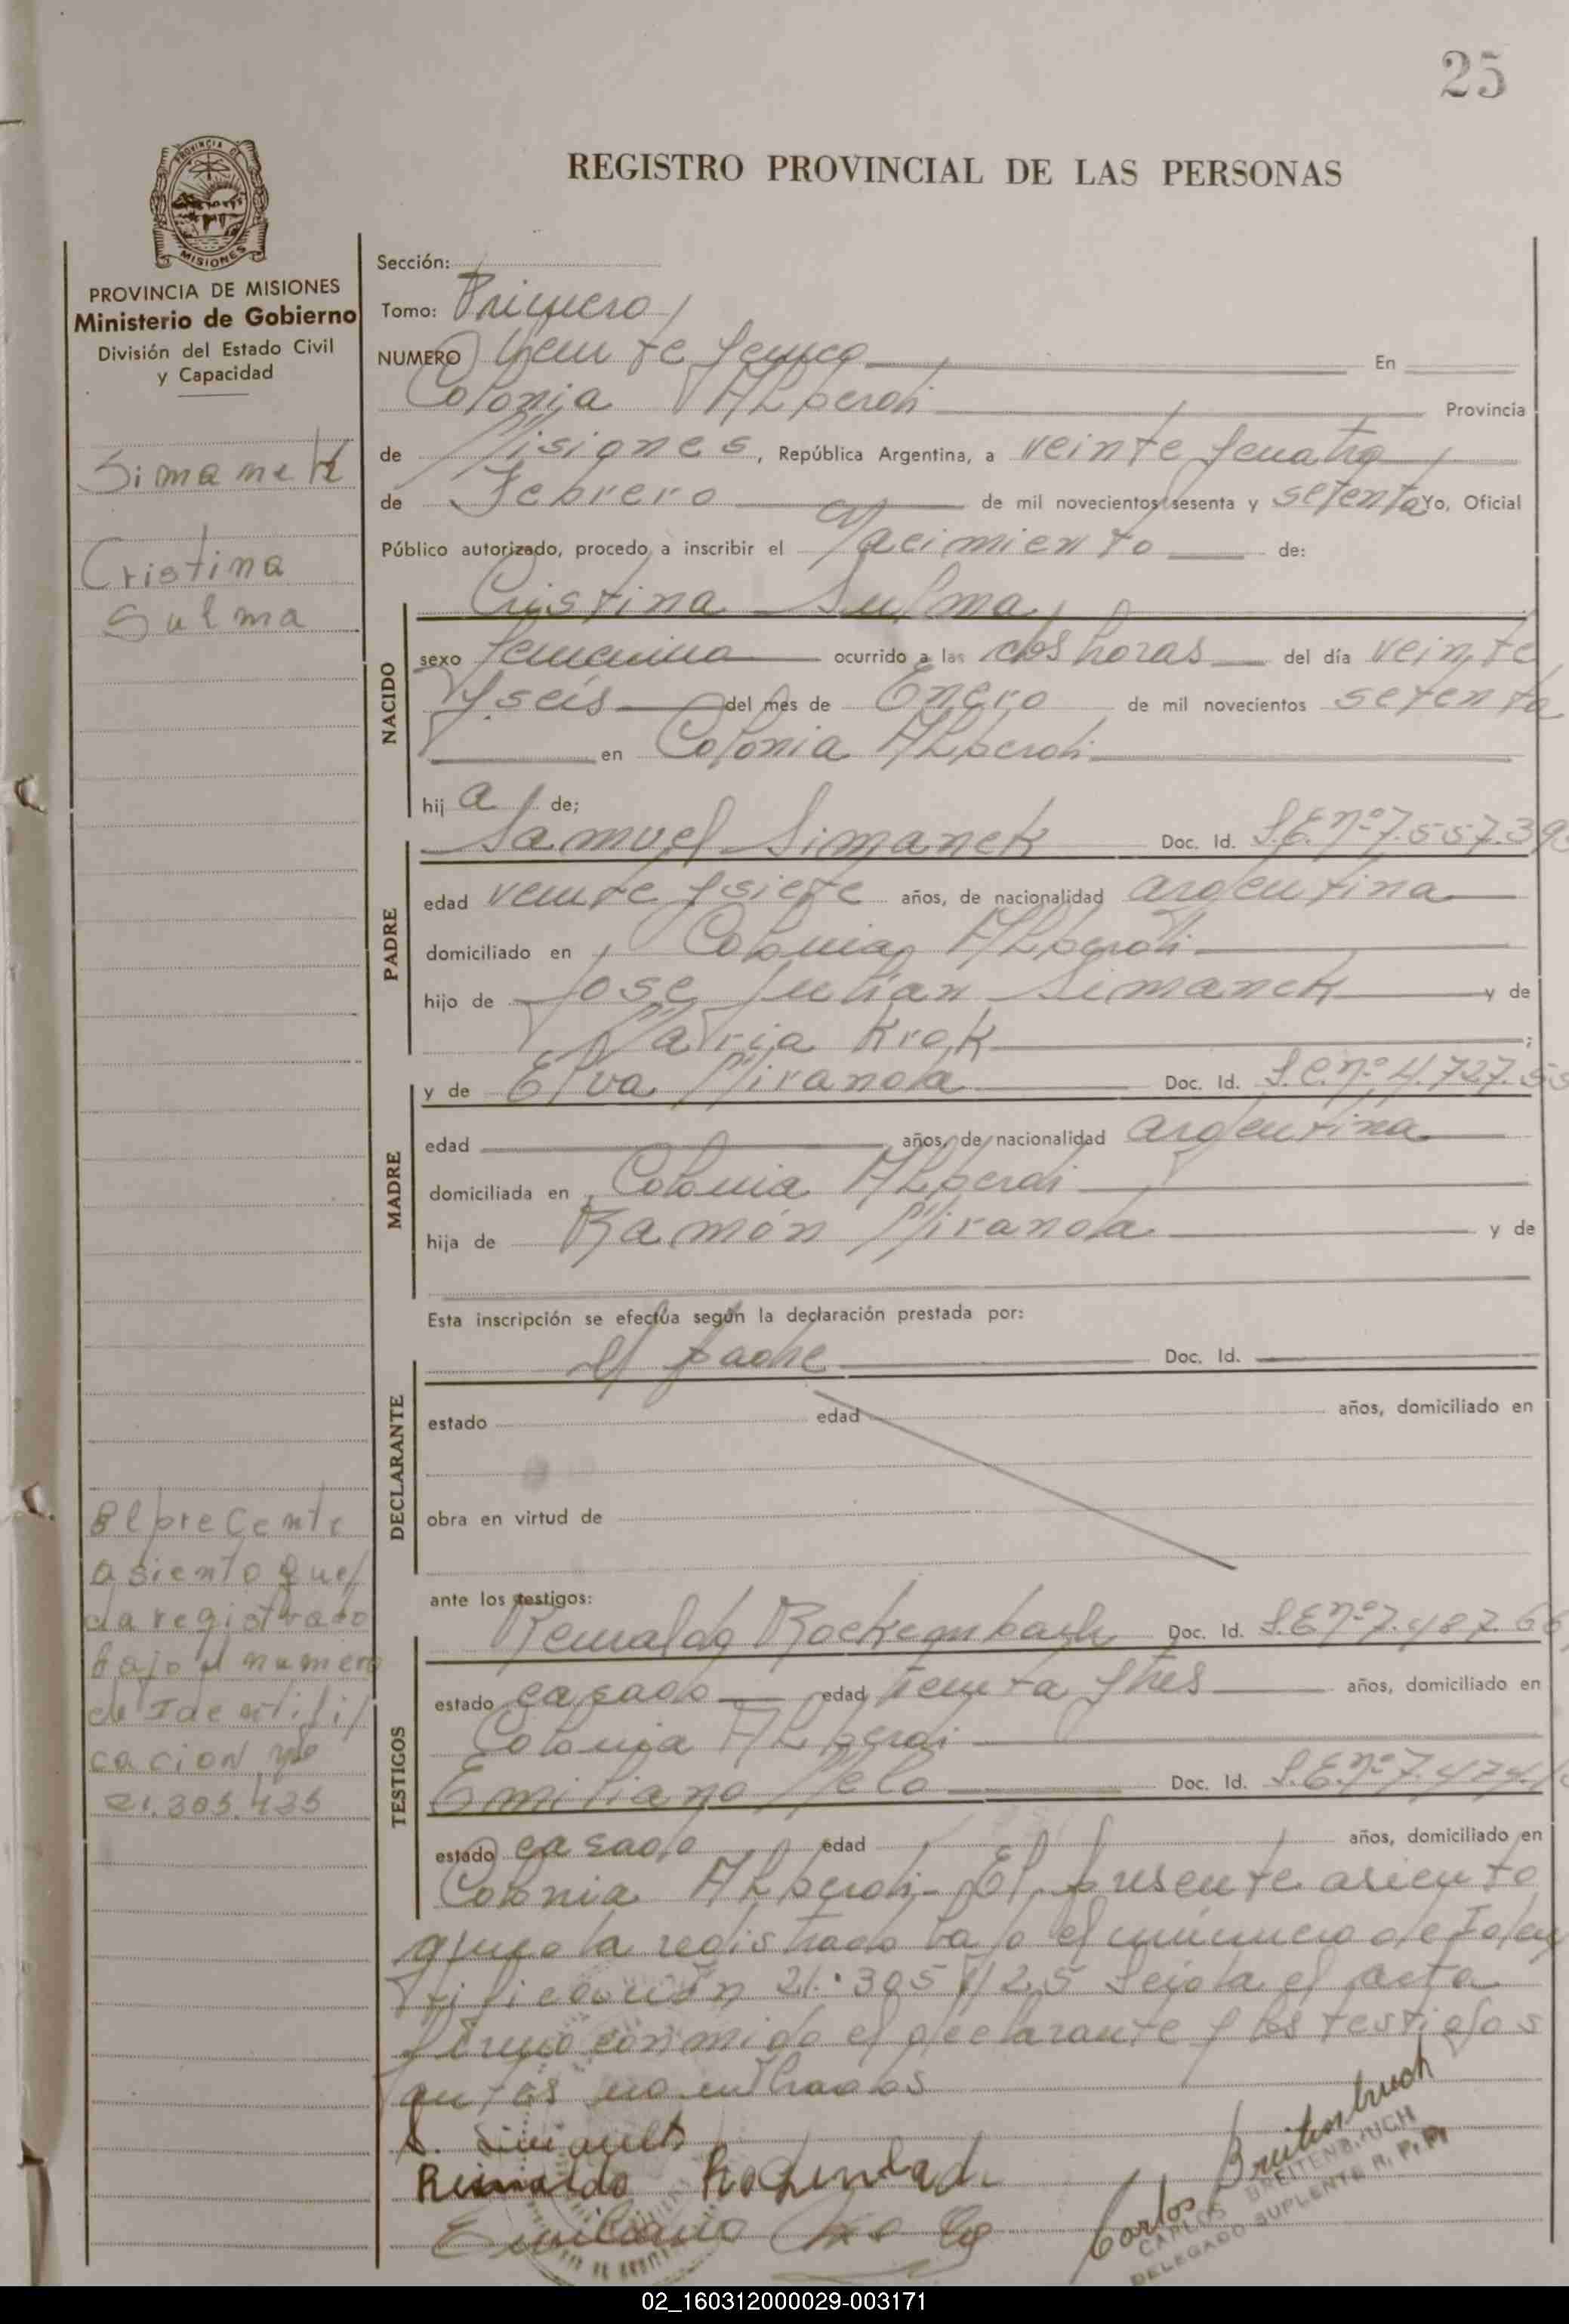 25
REGISTRO PROVINCIAL DE LAS PERSONAS
PROVINCIA DE MISIONES
Ministerio de Gobierno
División del Estado Civil
y Capacidad
Simanek
Cristina
Sulma
Sección:
Tomo: Primero
NUMERO Veinte y cinco En
Colonia Alberdi Provincia
de Misiones, República Argentina, a veinte y cuatro
de Febrero de mil novecientos sesenta y setenta Yo, Oficial
Público autorizado, procedo a inscribir el Nacimiento de:
Cristina Sulma
NACIDO
sexo femenino ocurrido a las dos horas del día veinte
y seis del mes de Enero de mil novecientos setenta
en Colonia Alberdi
hij a de;
PADRE
Samuel Simanek Doc. Id. L.E. nº 7.557.39
edad veinte y siete años, de nacionalidad argentina
domiciliado en Colonia Alberdi
hijo de Jose Julian Simanek y de
Maria Krok ;
MADRE
y de Elva Miranda Doc. Id. L.C. nº 4.727.
edad años, de nacionalidad argentina
domiciliada en Colonia Alberdi
hija de Ramón Miranda y de
Esta inscripción se efectúa según la declaración prestada por:
DECLARANTE
el padre Doc. Id.
estado edad años, domiciliado en
obra en virtud de
ante los testigos:
TESTIGOS
Reinaldo Rockembach Doc. Id. L.E. nº 7.487.66
estado casado edad treinta y tres años, domiciliado en
Colonia Alberdi
Emiliano Melo Doc. Id. L.E. nº 7.474.
estado casado edad años, domiciliado en
Colonia Alberdi- El presente asiento
queda registrado bajo el número de Iden
tificación 21.305.425 Leida el acta
firmo conmigo el declarante y los testigos
antes nombrados
El precente
asiento que/
da registrado
bajo el numero
de Identifi/
cacion nº
21.305.425
S. Simanek
Reinaldo
Emiliano Melo
Carlos Breitenbruch
CARLOS BREITENBRUCH
DELEGADO SUPLENTE R. P. P.
02_160312000029-003171